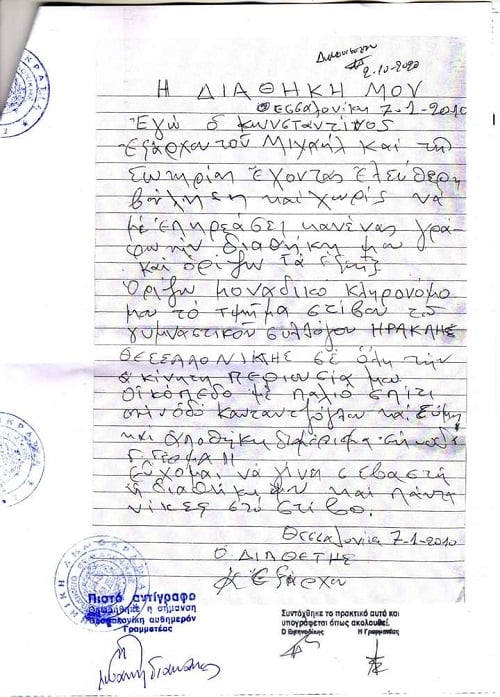 Δημοσίευση
2-10-2020
Η ΔΙΑΘΗΚΗ ΜΟΥ
Θεσσαλονίκη 7-1-2010
Εγώ ο Κωνσταντίνος
Εξάρχου του Μιχαήλ και της
Σωτηρίας Έχοντας Ελεύθερη
βούληση και χωρίς να
με επηρεάσει κανένας γρά-
φω την διαθήκη μου
και ορίζω τα εξής
Ορίζω μοναδικό κληρονόμο
μου το τμήμα στίβου του
γυμναστικού συλλόγου ΗΡΑΚΛΗΣ
ΘΕΣΣΑΛΟΝΙΚΗΣ σε όλη την
ακίνητη περιουσία μου
Οικόπεδο με παλιό σπίτι
στην οδό Καυταντζόγλου και
και αποθήκη διαμέρισμα
Εύχομαι να γίνη σεβαστή
η διαθήκη μου και πάντα
νίκες στο στίβο.
Θεσσαλονίκη 7-1-2010
Ο ΔΙΑΘΕΤΗΣ
Κ Εξάρχου
Πιστό αντίγραφο
Θεωρήθηκε η σήμανση
Θεσσαλονίκη αυθημερόν
Γραμματέας
Συντάχθηκε το πρακτικό αυτό και
υπογράφεται όπως ακολουθεί.
Ο Ειρηνοδίκης Η Γραμματέας